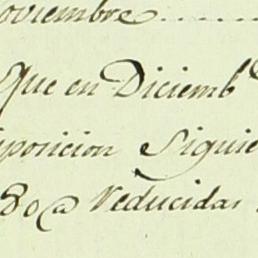 oviembre.......
Que en Diciembᵉ
posicion Siguie
80@ Reducidas